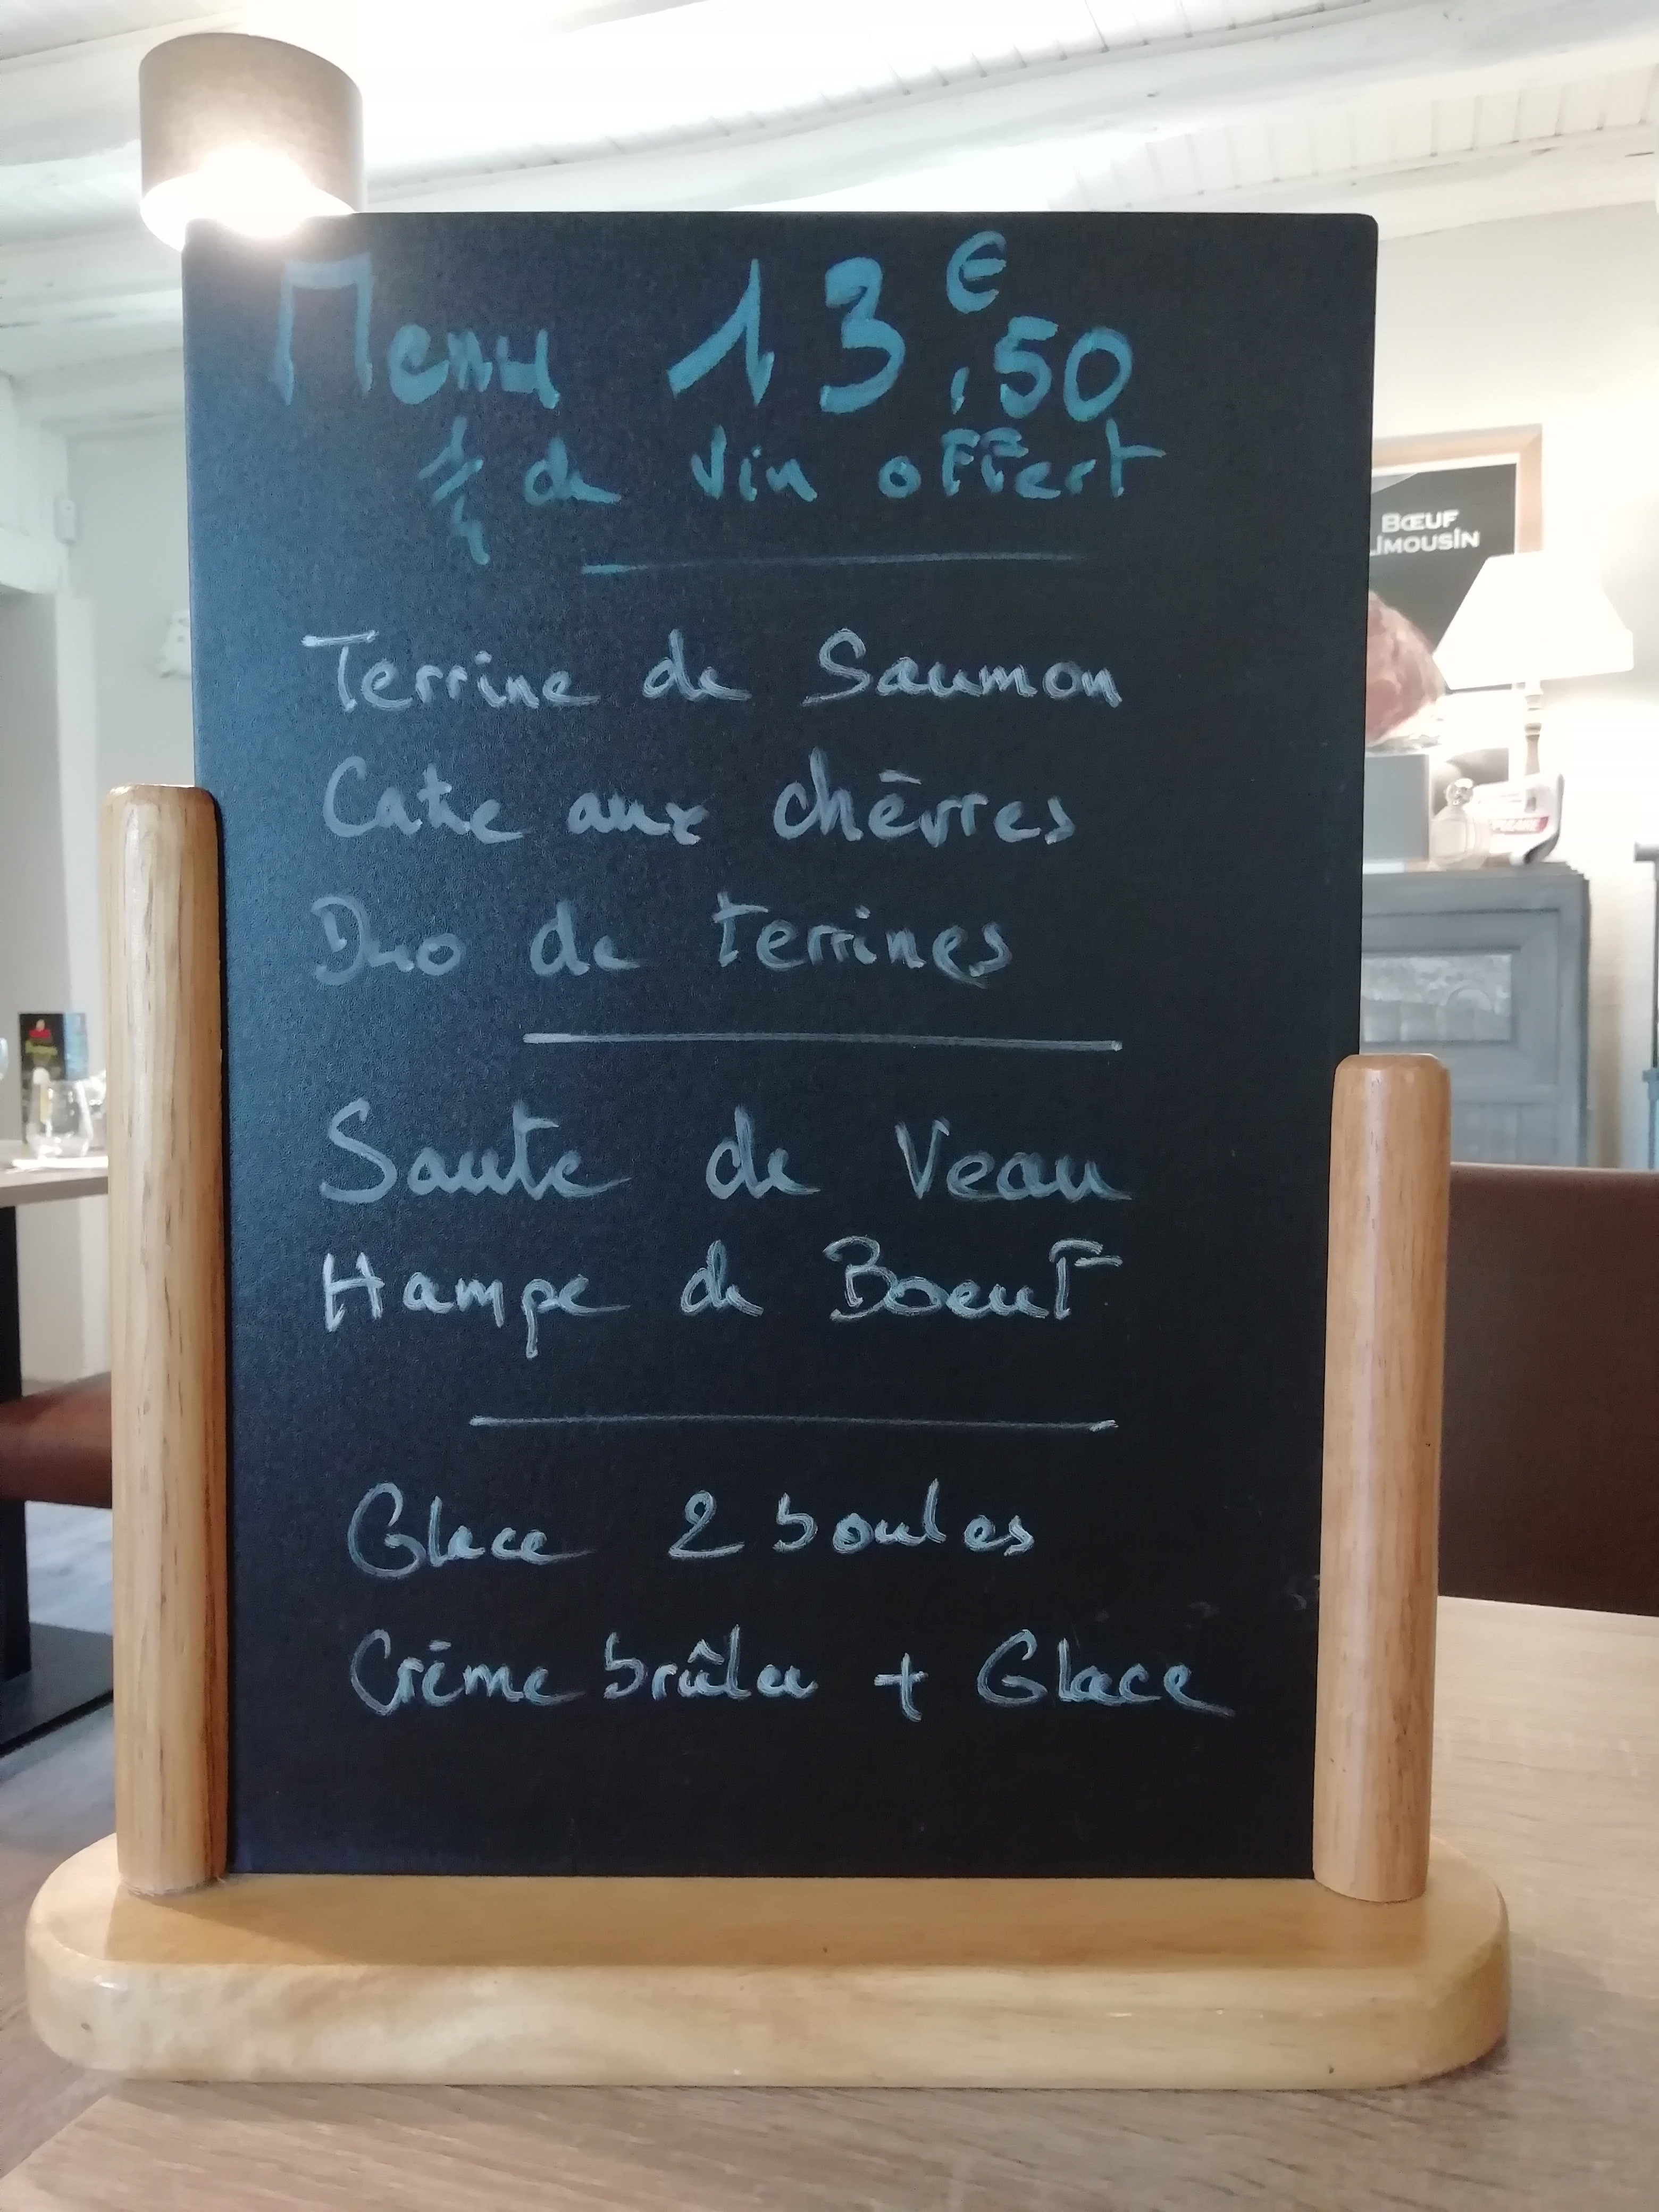 Menu 13€,50
1/4 de vin offert
Terrine de Saumon
Cake aux chèvres
Duo de terrines
Saute de Veau
Hampe de Boeuf
Glace 2 boules
Crème brûlée + Glace
BŒUF
LIMOUSIN